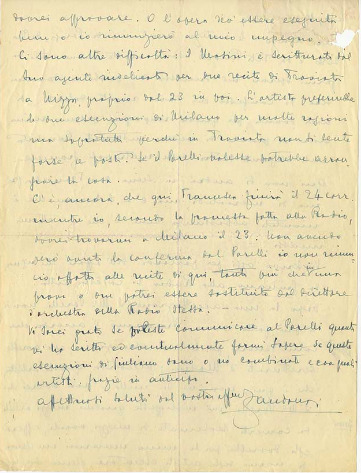 dovrei approvare. O l'opera può essere eseguita
bene o io rinunzierò al mio impegno.
Ci sono altre difficoltà: I Modini, è scritturato dal
suo agente per due recite di Traviata
a Nizza, proprio dal 23 in poi. L'artista preferirebbe
le due esecuzioni di Milano per molte ragioni
ma sopratutto perchè in Traviata non si sente
forse a posto. Se il Parelli volesse potrebbe
la cosa.
C'è ancora, che qui, Francesca finirà il 24 corr.
mentre io, secondo la promessa fatta alla Radio,
dovrei trovarmi a Milano il 23. Non avendo
però avuto la conferma dal Parelli io non
affatto alle recite di qui, tanto più che una
prova o due potrei essere sostituito dal direttore
d'orchestra della Radio stessa.
Vi sarei grato se poteste comunicare al Parelli quanto
vi ho scritto ed eventualmente farmi sapere se queste
esecuzioni di Giuliano sono o no combinate e con quali
artisti. Grazie in anticipo.
Affettuosi saluti dal vostro aff.
Zandonai